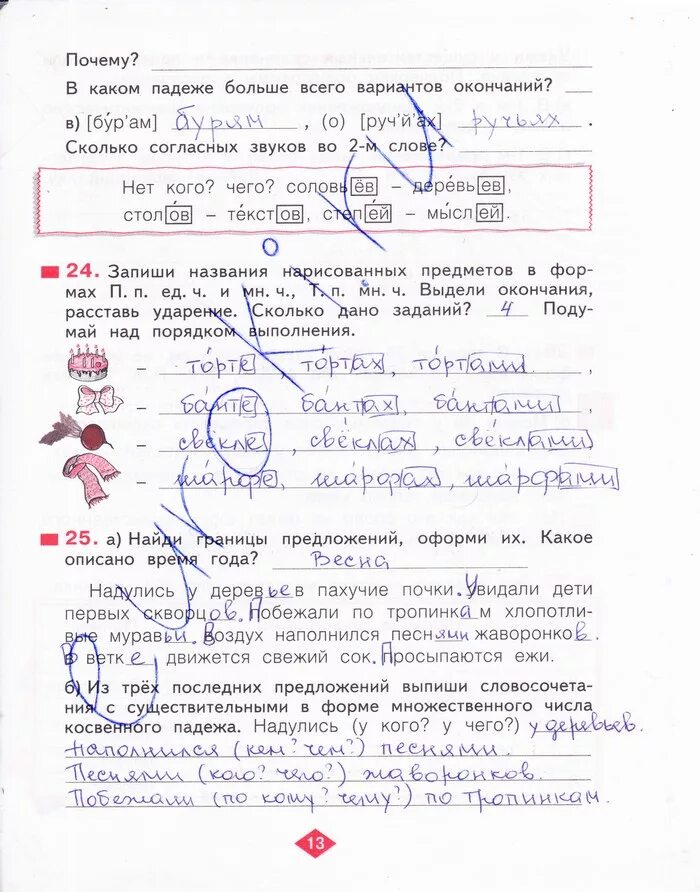 Почему?
В каком падеже больше всего вариантов окончаний?
в) [бу́р'ам] бурям, (о) [руч'й'а́х] ручьях.
Сколько согласных звуков во 2-м слове?
Нет кого? чего? соловьёв – дере́вьев,
столо́в – те́кстов, степе́й – мы́слей.
24. Запиши названия нарисованных предметов в фор-
мах П. п. ед. ч. и мн. ч., Т. п. мн. ч. Выдели окончания,
расставь ударение. Сколько дано заданий? 4 Поду-
май над порядком выполнения.
– то́рте, то́ртах, то́ртами,
– ба́нте, ба́нтах, ба́нтами,
– свёкле, свёклах, свёклами
– ша́рфе, ша́рфах, ша́рфами
25. а) Найди границы предложений, оформи их. Какое
описано время года? Весна
Надулись у деревьев пахучие почки. Увидали дети
первых скворцов. Побежали по тропинкам хлопотли-
вые муравьи. Воздух наполнился песнями жаворонков.
В ветке движется свежий сок. Просыпаются ежи.
б) Из трёх последних предложений выпиши словосочета-
ния с существительными в форме множественного числа
косвенного падежа. Надулись (у кого? у чего?) у деревьев.
Наполнился (кем? чем?) песнями.
Песнями (кого? чего?) жаворонков.
Побежали (по кому? чему?) по тропинкам.
13